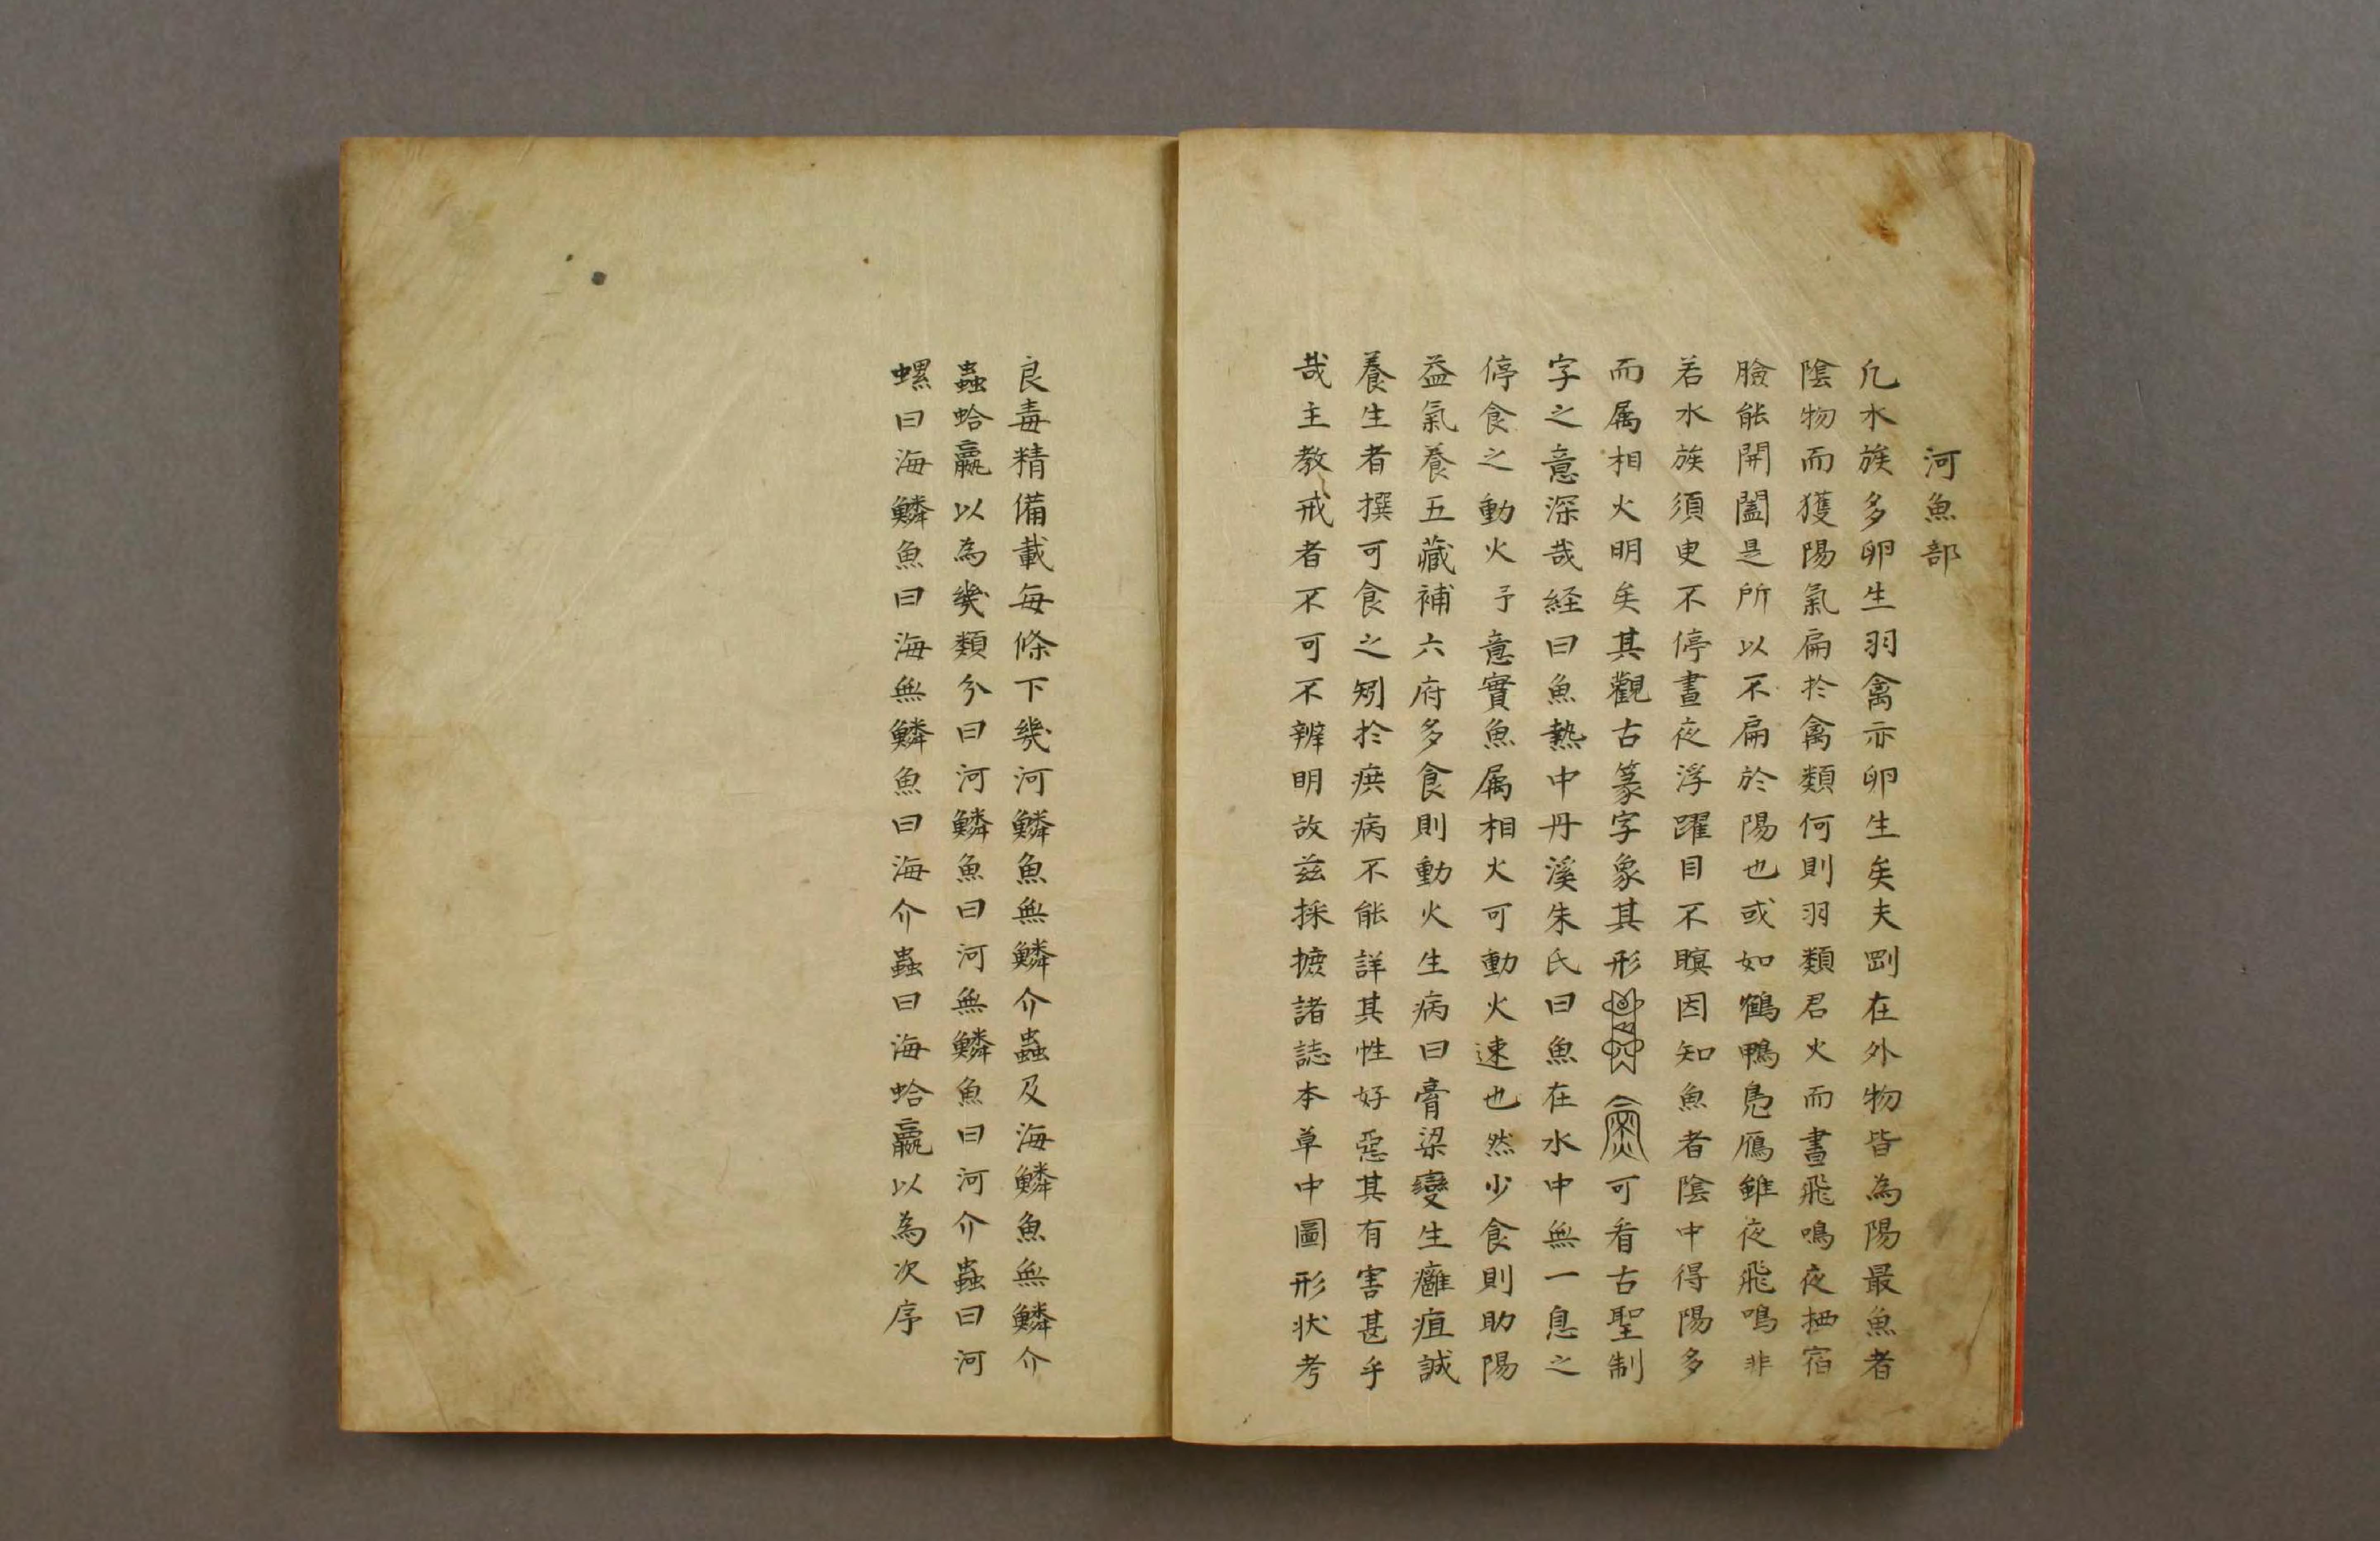 河魚部
凡水族多卵生羽禽亦卵生矣夫剛在外物皆為陽最魚者
陰物而獲陽氣扁扵禽類何則羽類君火而晝飛鳴夜栖宿
臉能開闔是所以不扁於陽也或如鶴鴨鳧鴈雖夜飛鳴非
若水族須臾不停晝夜浮躍目不瞑因知魚者陰中得陽多
而属相火明矣其觀古篆字象其形可看古聖制
字之意深哉経曰魚熱中丹溪朱氏曰魚在水中無一息之
停食之動火予意實魚属相火可動火速也然少食則助陽
益氣養五藏補六府多食則動火生病曰膏梁變生癰疽誠
養生者撰可食之矧扵疾病不能詳其性好惡其有害甚乎
哉主教戒者不可不辨明故茲採摭諸誌本草中圖形状考
良毒精備載每條下幾河鱗魚無鱗介蟲及海鱗魚無鱗介
蟲蛤蠃以為幾類分曰河鱗魚曰河無鱗魚曰河介蟲曰河
螺曰海鱗魚曰海無鱗魚曰海介蟲曰海蛤蠃以為次序